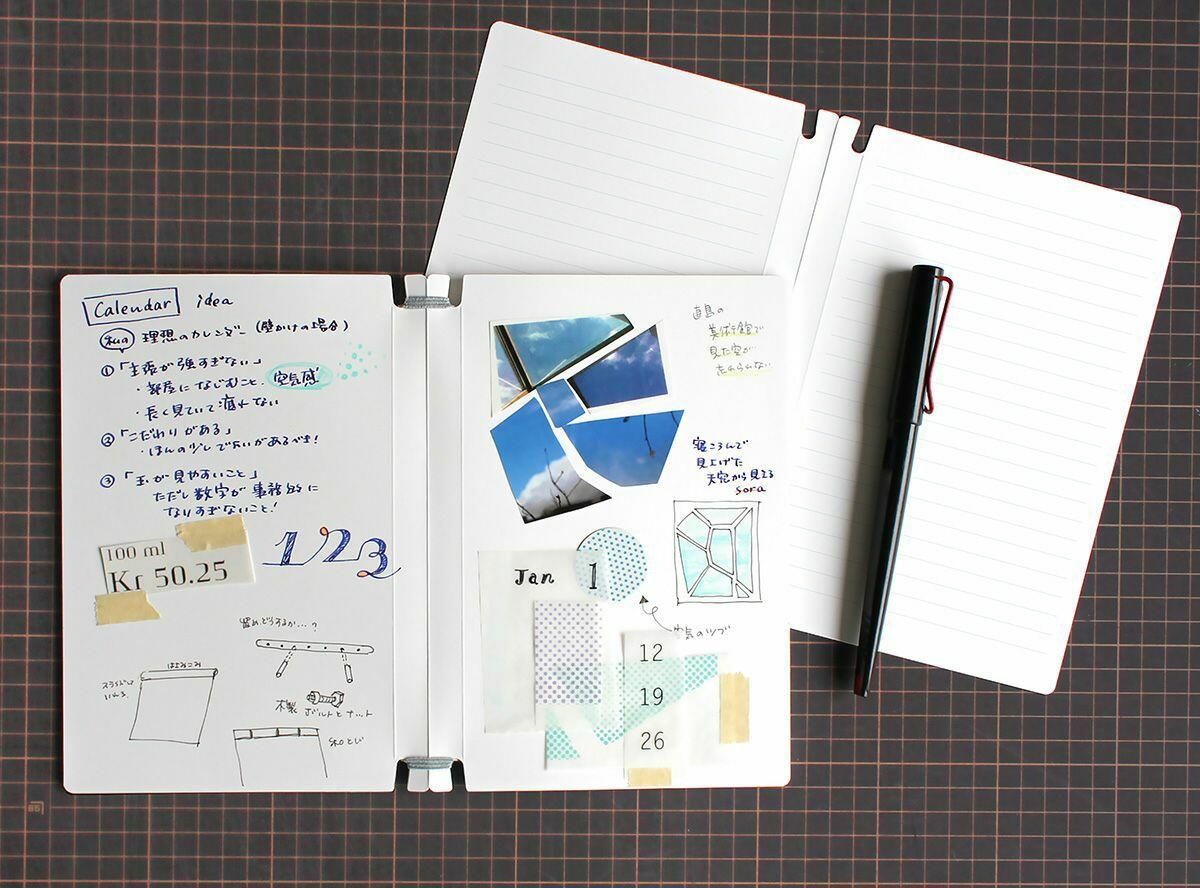 Calendar idea
私の 理想のカレンダー (壁かけの場合)
①「主張が強すぎない」
・部屋になじむこと. 空気感
・長く見ていて疲れない
②「こだわりがある」
・ほんの少しでいいがあるべき!
③「玉が見やすいこと」
ただし数字が事務的に
なりすぎないこと!
100 ml
Kr 50.25
123
留め、どうするか…?
はさみこみ
スライドして
いれる
木製 ボルトとナット
和とじ
直島の
美術館で
見た空が
忘れられない
寝ころんで
見上げた
天窓から見える
sora
Jan 1
空気のツブ
12
19
26
B5